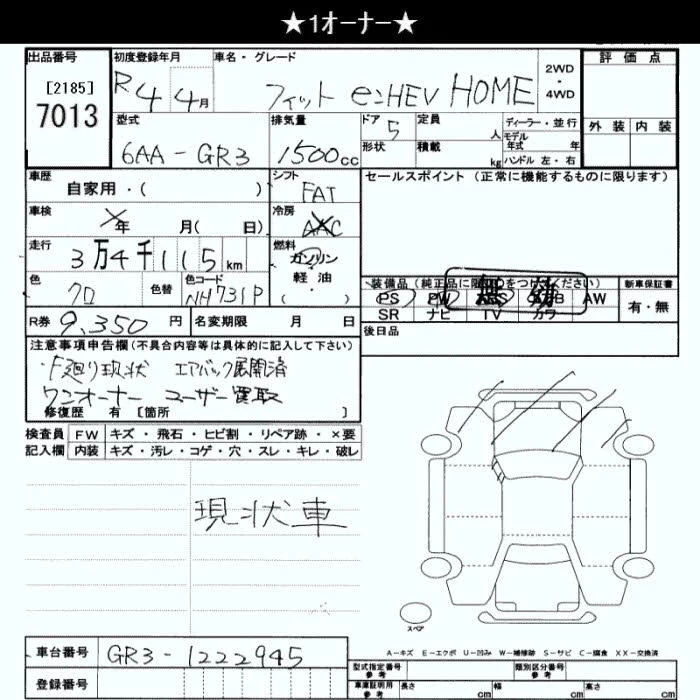 ★1オーナー★
出品番号 初度登録年月 車名・グレード 評価点
[2185] R4 4月 フィット eːHEV HOME 2WD・4WD
7013
型式 排気量 ドア 5 定員 人 ディーラー・並行 外装 内装
モデル年式 年
6AA-GR3 1500cc 形状 積載 kg ハンドル 左・右
車歴 シフト セールスポイント (正常に機能するものに限ります)
自家用・( ) FAT
車検 冷房
年 月( 日) AAC
走行 燃料
3万4千115km ガソリン
色 色替 色コード 軽・油 装備品 (純正品に限 をつけ ください) 新車保証書
クロ NH731P ( ) PS PW 無効 AW 有・無
SR ナビ TV カワ
R券 9,350円 名変期限 月 日 後日品
注意事項申告欄(不具合内容等は具体的に記入して下さい)
・下廻り現状 エアバック展開済
ワンオーナー ユーザー買取
修復歴 有 [箇所 ]
検査員 FW キズ・飛石・ヒビ割・リペア跡・×要
記入欄 内装 キズ・汚レ・コゲ・穴・スレ・キレ・破レ
現状車
スペア
A-キズ E-エクボ U-凹み W-補修跡 S-サビ C-腐食 XX-交換済
車台番号 GR3-1222945 型式指定番号 参考 類別区分番号 参考
登録番号 車庫証明用 参考 長さ cm 幅 cm 高さ cm